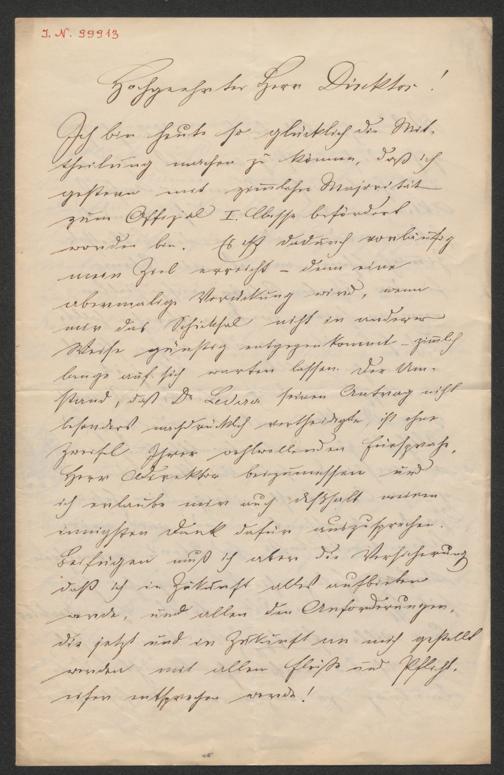 I. N. 99913
Hochgeehrter Herr Direktor!
Ich bin heute so glücklich die Mit-
theilung machen zu können, daß ich
gestern mit ziemlicher Majorität
zum Offizial I. Classe befördert
worden bin. Es ist dadurch vorläufig
mein Ziel erreicht – denn eine
abermalige Vorrückung wird, wenn
mir das Schicksal nicht in anderer
Weise günstig entgegenkommt – ziemlich
lange auf sich warten lassen. Der Um-
stand, daß Dr Lederer seinen Antrag nicht
besonders nachdrücklich vertheidigte, ist ohne
Zweifel Ihrer wohlwollenden Fürsprache,
Herr Direktor beizumessen und
ich erlaube mir auch deßhalb meinen
innigsten Dank dafür auszusprechen.
Beifügen muß ich aber die Versicherung
daß ich in Zukunft alles aufbieten
werde, und allen den Anforderungen,
die jetzt und in Zukunft an mich gestellt
werden mit allem Fleiße und Pflicht-
eifer entsprechen werde!